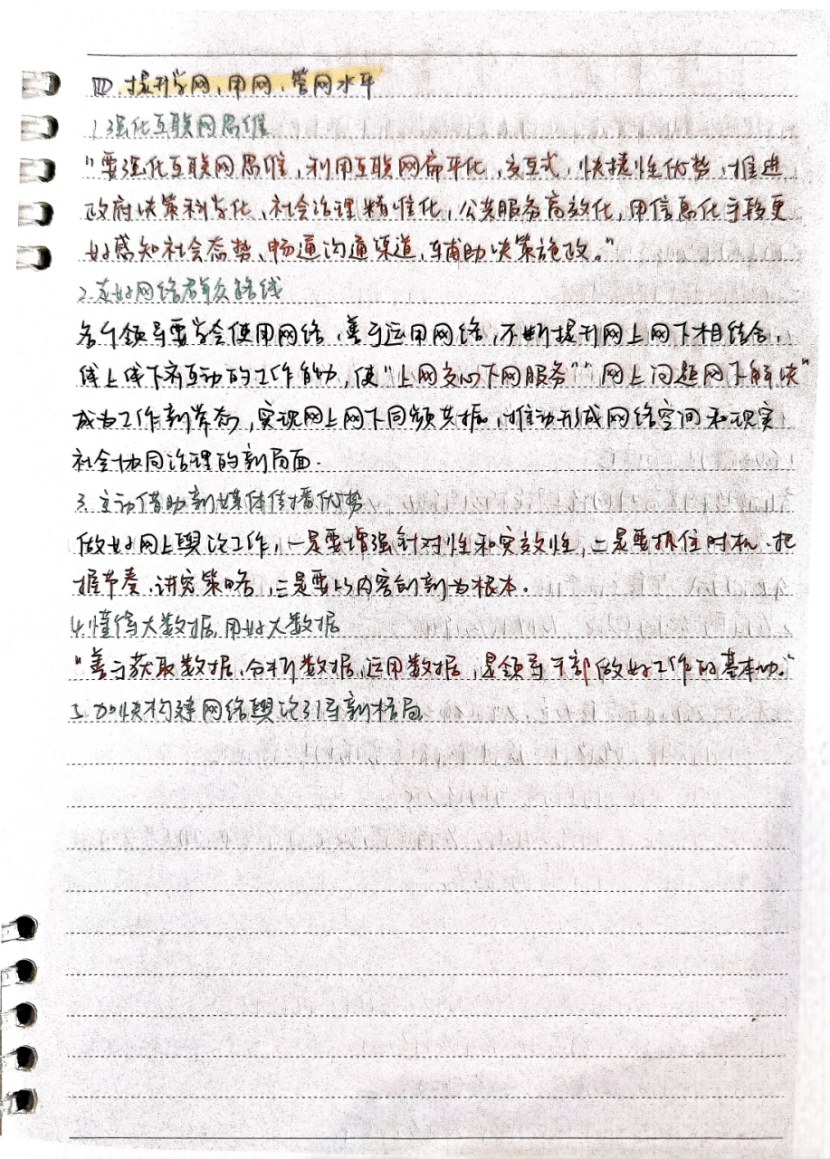 四.提升学网、用网、管网水平
1.强化互联网思维
"要强化互联网思维,利用互联网扁平化、交互式、快捷性优势,推进
政府决策科学化、社会治理精准化、公共服务高效化,用信息化手段更
好感知社会态势、畅通沟通渠道、辅助决策施政。"
2.走好网络群众路线
各个领导要学会使用网络,善于运用网络,不断提升网上网下相结合、
线上线下齐互动的工作能力,使"上网交心下网服务""网上问题网下解决"
成为工作新常态,实现网上网下同频共振,推动形成网络空间和现实
社会协同治理的新局面.
3.主动借助新媒体传播优势
做好网上舆论工作,一是要增强针对性和实效性,二是要抓住时机、把
握节奏、讲究策略,三是要以内容创新为根本.
4.懂得大数据,用好大数据
"善于获取数据、分析数据、运用数据,是领导干部做好工作的基本功。"
5.加快构建网络舆论引导新格局